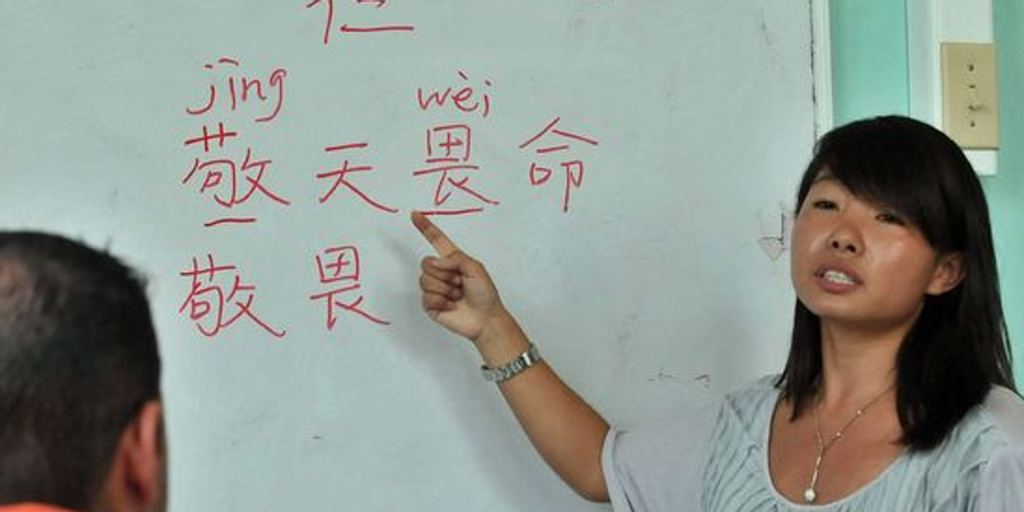 jìng wèi
敬天畏命
敬畏